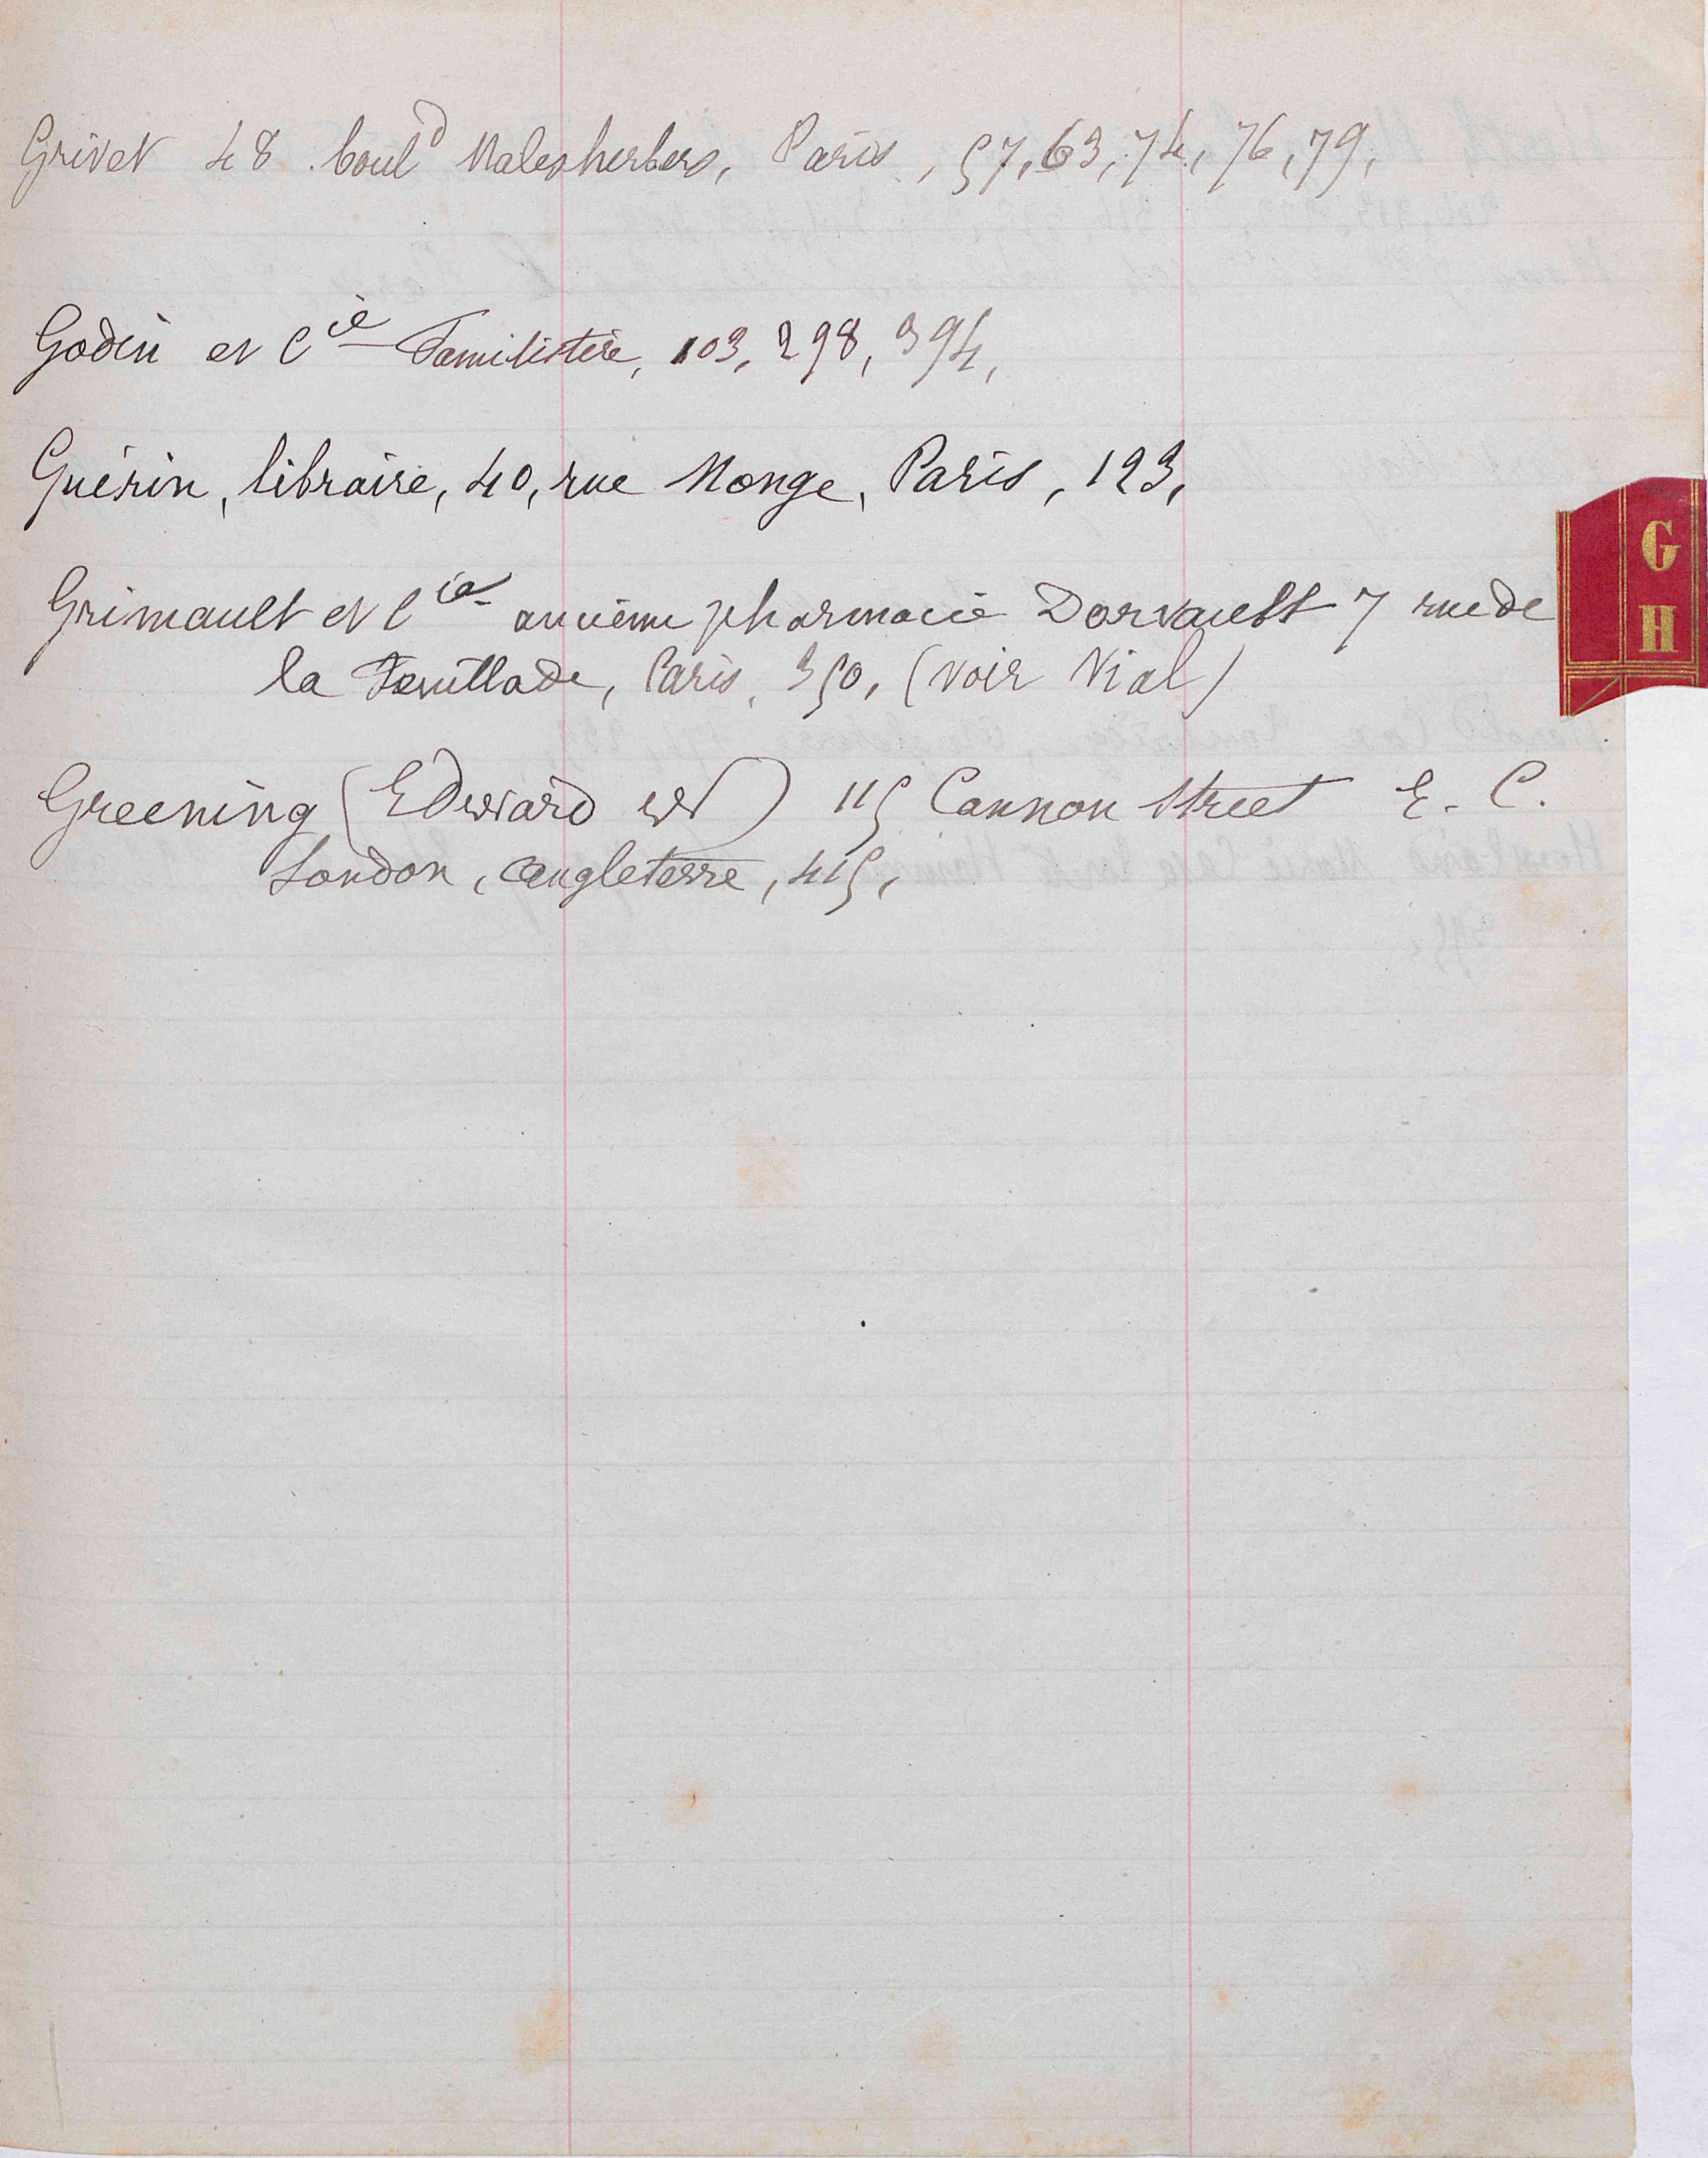 Grivet 48 boul^d Malesherbes, Paris, 57, 63, 74, 76, 79,
Godin et C^ie Familistère, 103, 298, 394,
Guérin, libraire, 40, rue Monge, Paris, 123,
Grimault et C^ie ancienne pharmacie Dorvault 7 rue de
la Feuillade, Paris, 350, (voir Vial)
Greening (Edward W) 115 Cannon Street E. C.
London, Angleterre, 415,
G
H